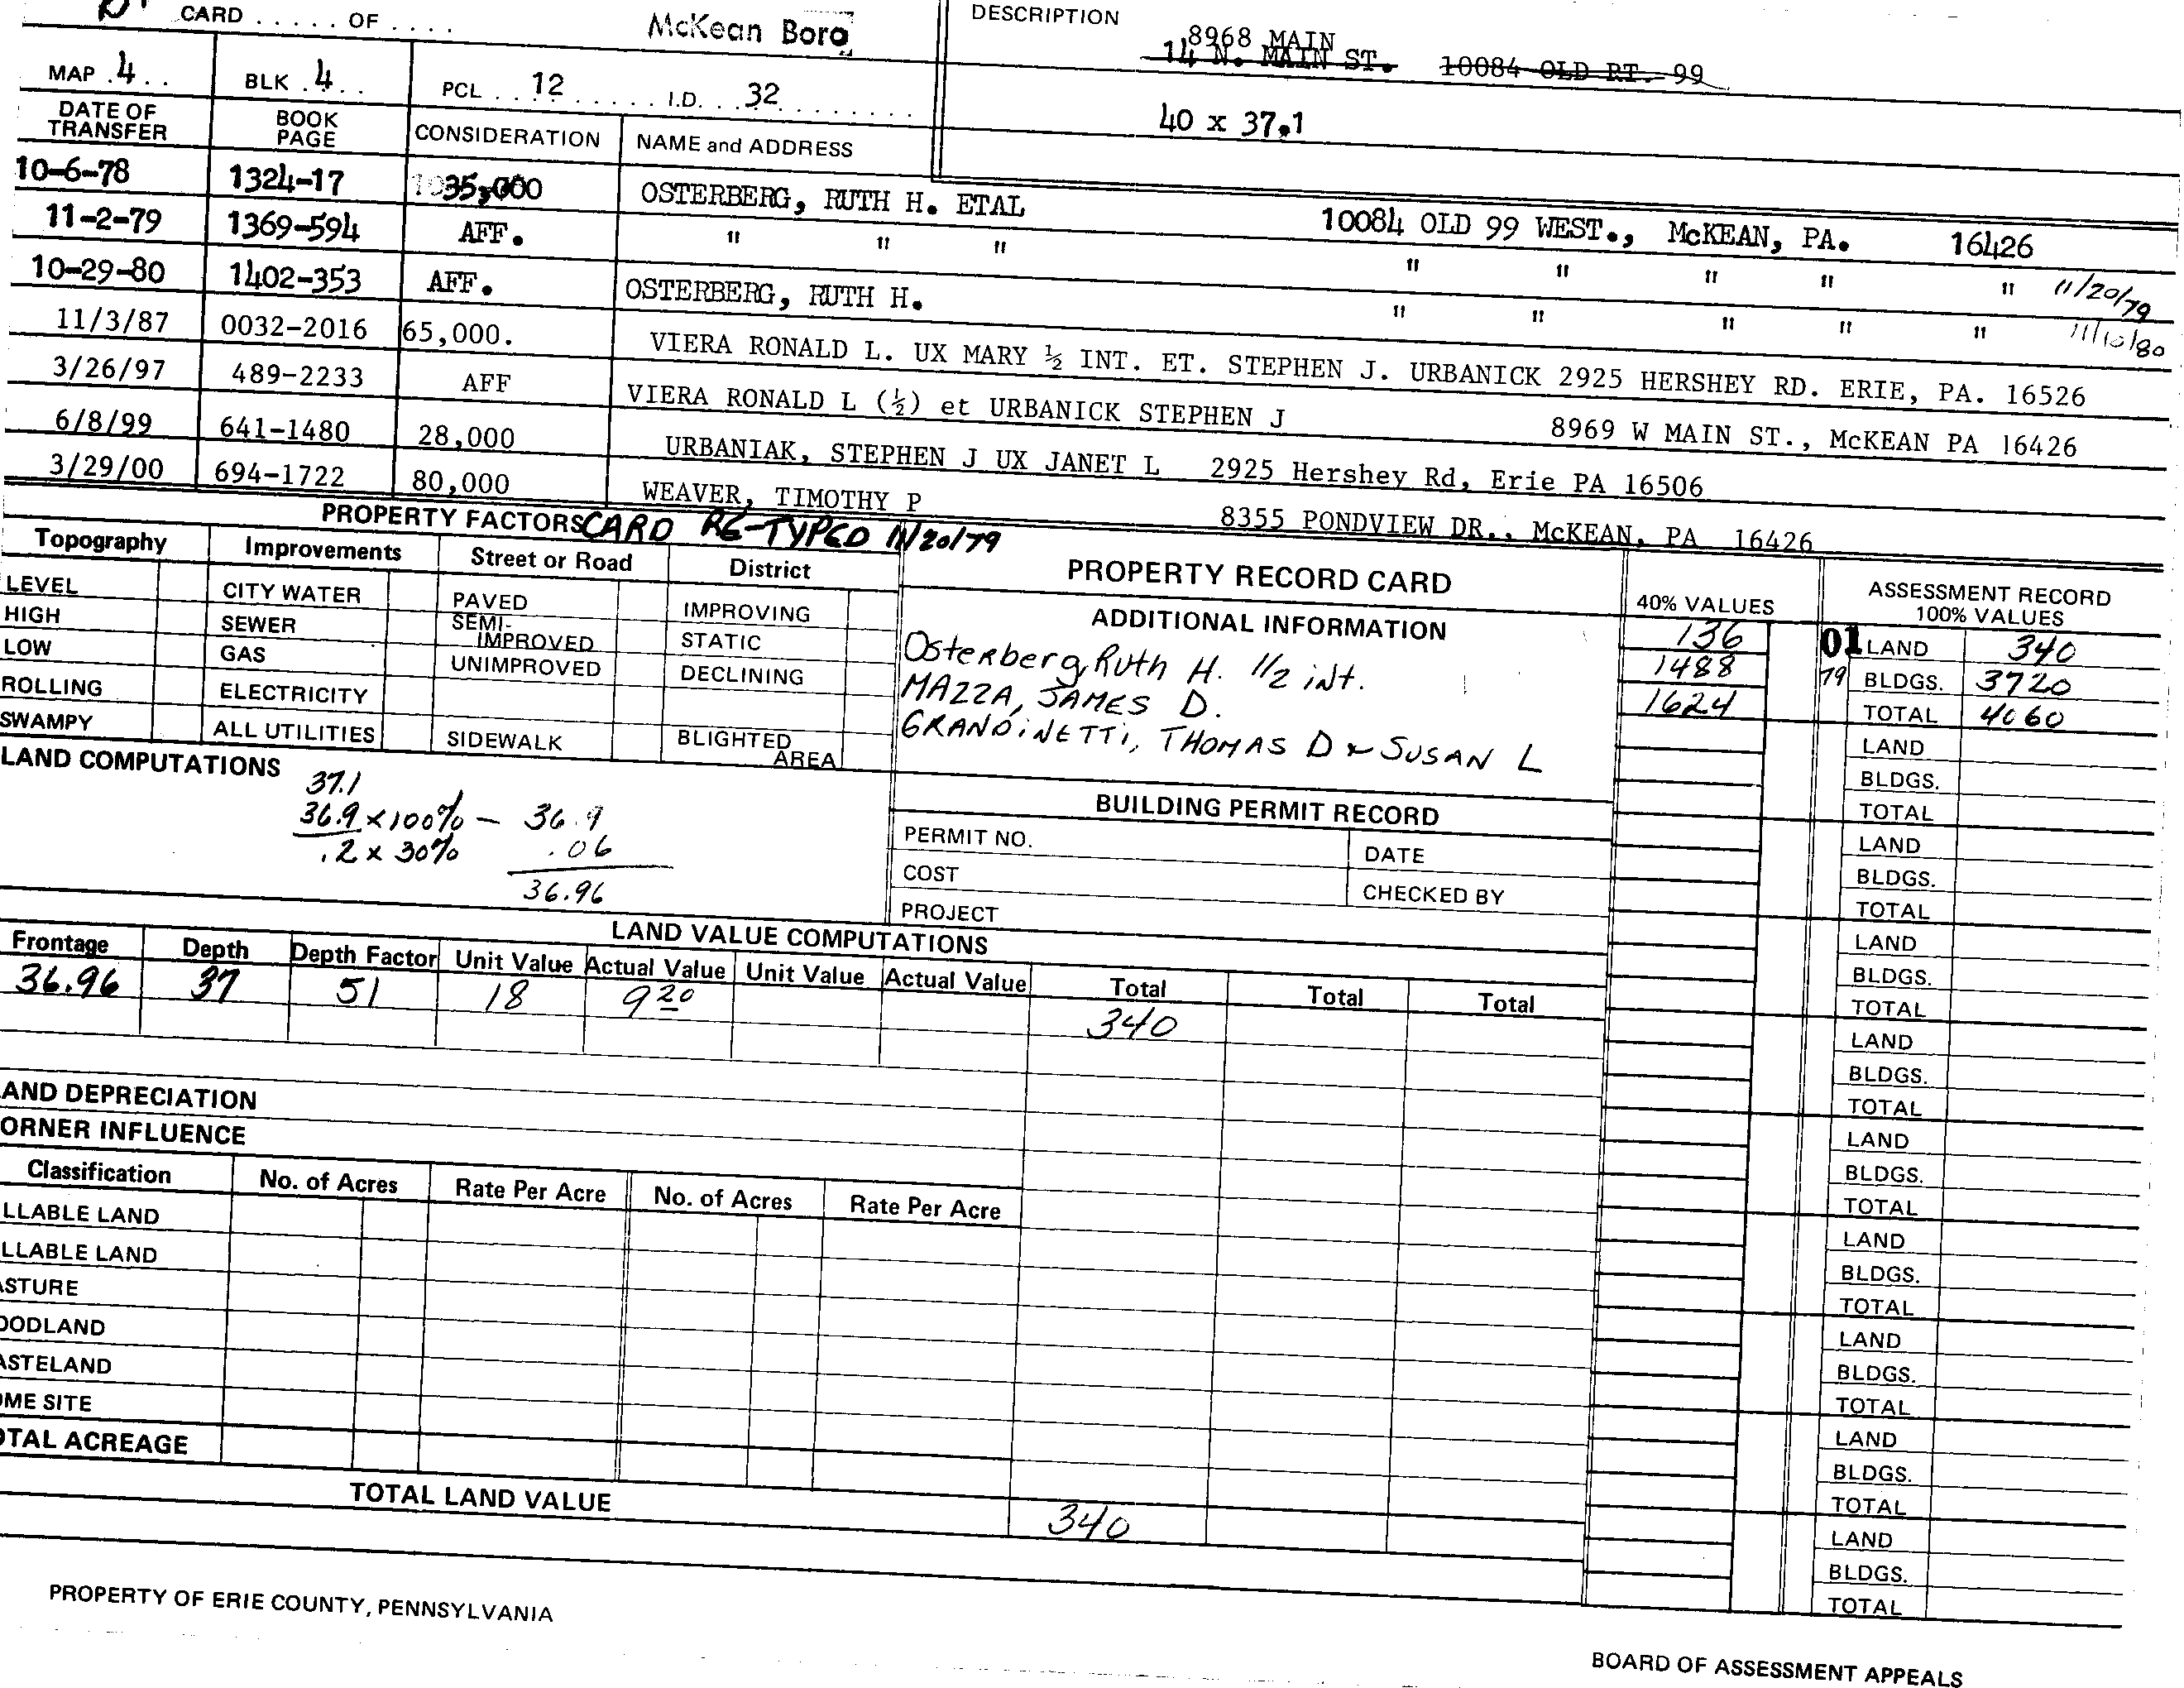 CARD . . . . . OF . . . .
McKean Boro
DESCRIPTION
8968 MAIN
14 N. MAIN ST. 10084 OLD RT. 99
MAP . 4 . . BLK . 4 . . PCL . . 12 . . . . . . I.D. . . 32 . . . . . . . .
40 x 37.1
DATE OF TRANSFER BOOK PAGE CONSIDERATION NAME and ADDRESS
10-6-78 1324-17 35,000 OSTERBERG, RUTH H. ETAL 10084 OLD 99 WEST., McKEAN, PA. 16426
11-2-79 1369-594 AFF. " " " " " " " " 11/20/79
10-29-80 1402-353 AFF. OSTERBERG, RUTH H. " " " " " 11/10/80
11/3/87 0032-2016 65,000. VIERA RONALD L. UX MARY ½ INT. ET. STEPHEN J. URBANICK 2925 HERSHEY RD. ERIE, PA. 16526
3/26/97 489-2233 AFF VIERA RONALD L (½) et URBANICK STEPHEN J 8969 W MAIN ST., McKEAN PA 16426
6/8/99 641-1480 28,000 URBANIAK, STEPHEN J UX JANET L 2925 Hershey Rd, Erie PA 16506
3/29/00 694-1722 80,000 WEAVER, TIMOTHY P 8355 PONDVIEW DR., McKEAN, PA 16426
PROPERTY FACTORS CARD RE-TYPED 11/20/79
Topography Improvements Street or Road District
LEVEL CITY WATER PAVED IMPROVING
HIGH SEWER SEMI-IMPROVED STATIC
LOW GAS UNIMPROVED DECLINING
ROLLING ELECTRICITY
SWAMPY ALL UTILITIES SIDEWALK BLIGHTED AREA
PROPERTY RECORD CARD
ADDITIONAL INFORMATION
Osterberg, Ruth H. 1/2 int.
MAZZA, JAMES D.
GRANDiNETTi, THOMAS D & SUSAN L
40% VALUES
136
1488
1624
ASSESSMENT RECORD
100% VALUES
01 LAND 340
79 BLDGS. 3720
TOTAL 4060
LAND
BLDGS.
TOTAL
LAND
BLDGS.
TOTAL
LAND
BLDGS.
TOTAL
LAND
BLDGS.
TOTAL
LAND
BLDGS.
TOTAL
LAND
BLDGS.
TOTAL
LAND
BLDGS.
TOTAL
LAND
BLDGS.
TOTAL
LAND
BLDGS.
TOTAL
LAND COMPUTATIONS
37.1
36.9 x 100% - 36.9
.2 x 30% .06
36.96
BUILDING PERMIT RECORD
PERMIT NO. DATE
COST CHECKED BY
PROJECT
LAND VALUE COMPUTATIONS
Frontage Depth Depth Factor Unit Value Actual Value Unit Value Actual Value Total Total Total
36.96 37 51 18 9 20 340
AND DEPRECIATION
ORNER INFLUENCE
Classification No. of Acres Rate Per Acre No. of Acres Rate Per Acre
LLABLE LAND
LLABLE LAND
ASTURE
OODLAND
ASTELAND
OME SITE
OTAL ACREAGE
TOTAL LAND VALUE 340
PROPERTY OF ERIE COUNTY, PENNSYLVANIA
BOARD OF ASSESSMENT APPEALS